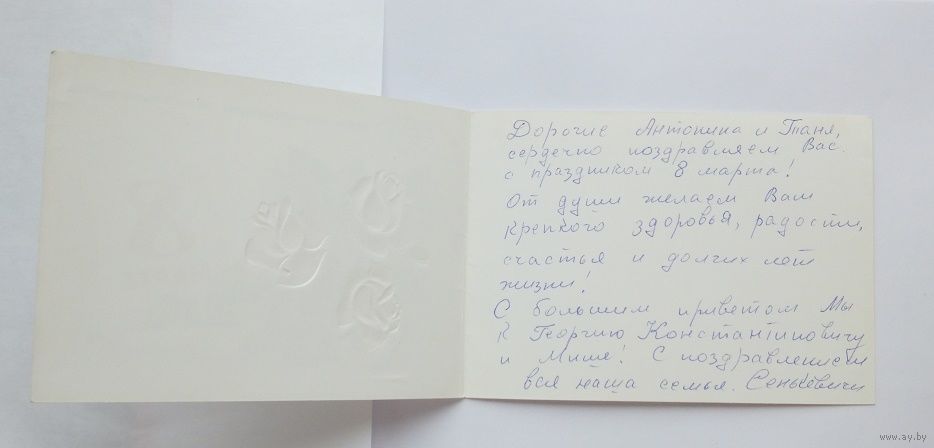 Дорогие Антонина и Таня,
сердечно поздравляем Вас
с праздником 8 марта!
От души желаем Вам
крепкого здоровья, радости,
счастья и долгих лет
жизни!
С большим приветом Мы
к Георгию Константиновичу
и Мише! С поздравлением
вся наша семья. Сенькевичи
www.ay.by